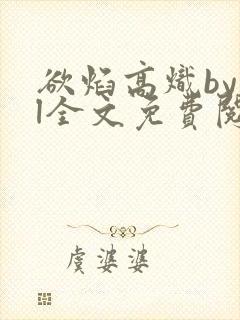 欲焰高熾by
l全文免費閱
虞婆婆